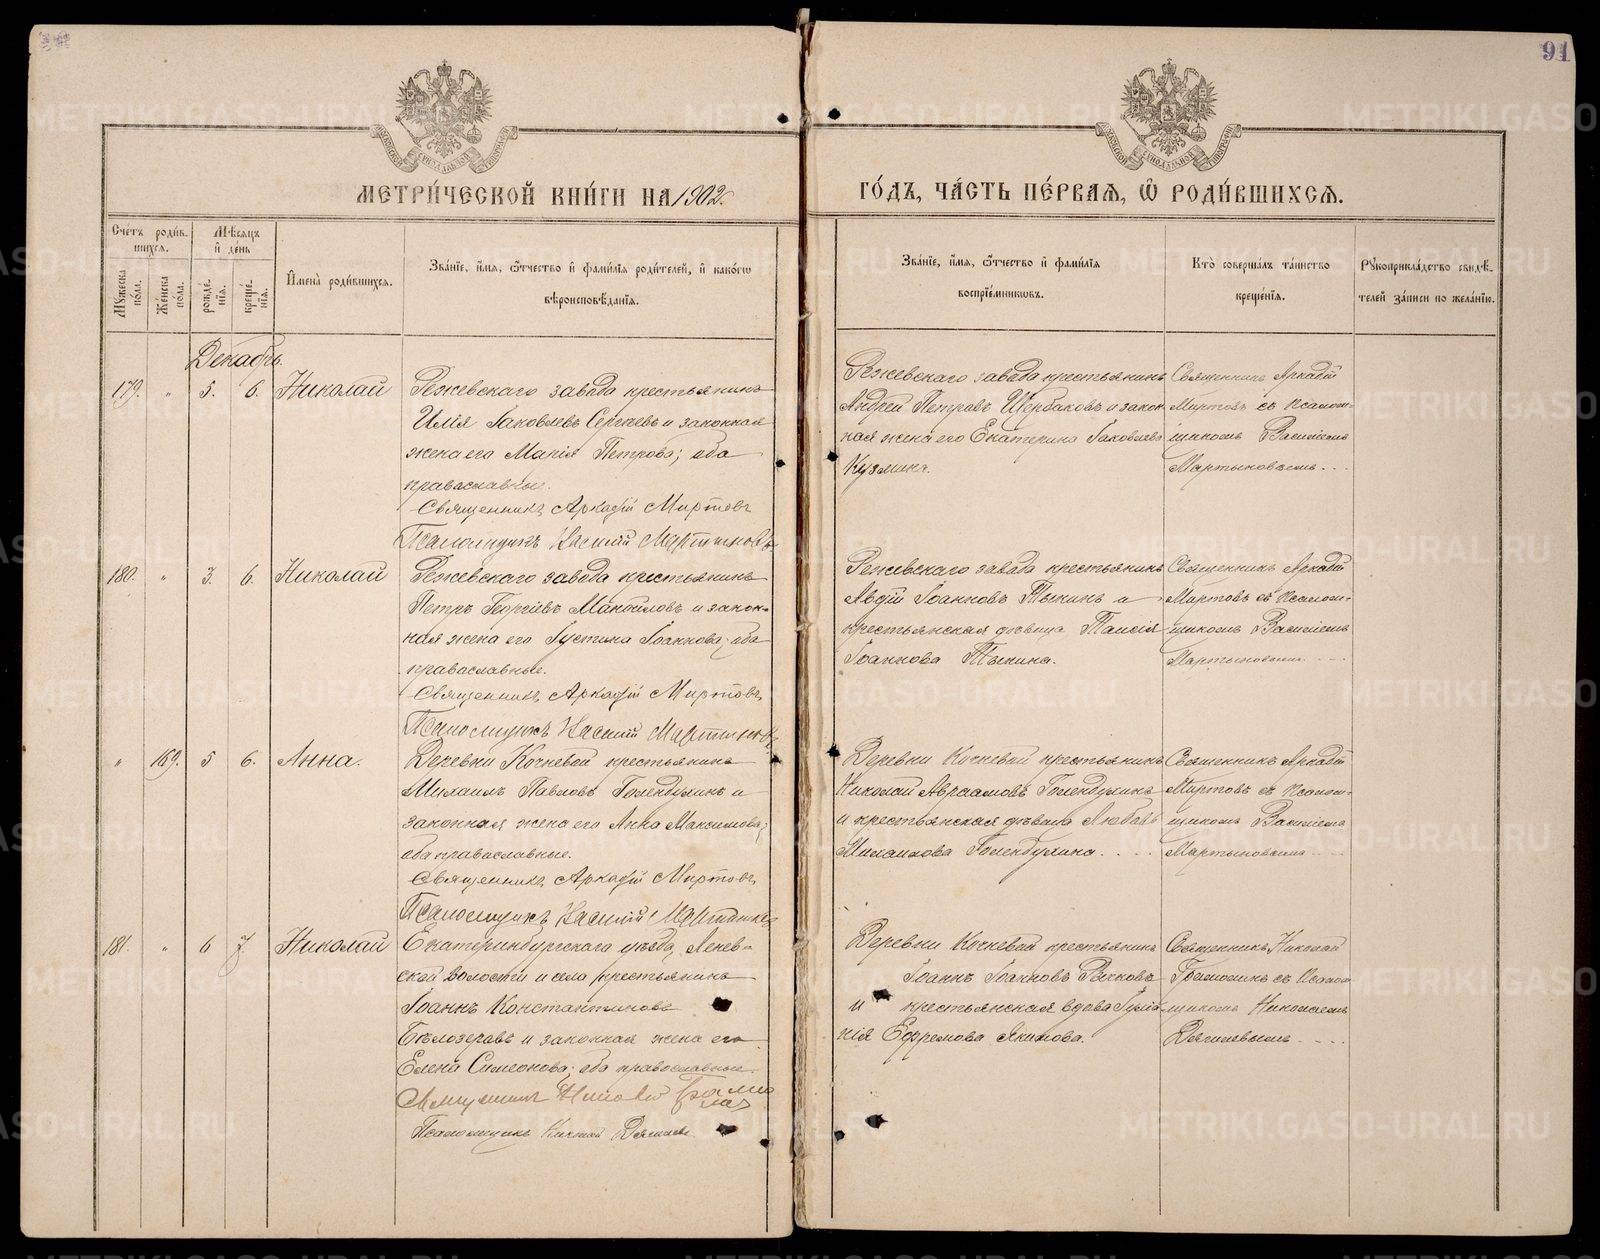 91
МЕТРИ́ЧЕСКОЙ КНИ́ГИ НА 1902.
ГО́ДЪ, ЧА́СТЬ ПЕ́РВАѦ, Ѽ РОДИ́ВШИХСѦ.
Сче́тъ роди́в-
шихсѧ.
Мѣ́сѧцъ
и҆ де́нь
Мꙋ́жеска по́ла.
Же́нска по́ла.
рожде́нїѧ.
креще́нїѧ.
И҆мена̀ роди́вшихсѧ.
Зва́нїе, и҆́мѧ, ѻ҆́тчество и҆ фами́лїѧ роди́телей, и҆ како́гѡ
вѣроисповѣ́данїѧ.
Зва́нїе, и҆́мѧ, ѻ҆́тчество и҆ фами́лїѧ
воспрїе́мникѡвъ.
Кто̀ соверша́лъ та́инство
креще́нїѧ.
Рꙋкоприкла́дство свидѣ́-
телей за́писи по жела́нїю.
Декабрь.
179. " 5. 6. Николай
Режевскаго завода крестьянинъ
Илія Іаковлевъ Сергѣевъ и законная
жена его Марія Петрова; оба
православные.
Священникъ Аркадій Миртовъ
Псаломщикъ Василій Мартыновъ
Режевскаго завода крестьянинъ
Андрей Петровъ Щербаковъ и закон
ная жена его Екатерина Іаковлева
Кузмина.
Священникъ Аркадій
Миртовъ съ Псалом-
щикомъ Василіемъ
Мартыновымъ.
180. " 3. 6. Николай
Режевскаго завода крестьянинъ
Петръ Георгіевъ Мантиловъ и закон-
ная жена его Іустина Іоаннова; оба
православные.
Священникъ Аркадій Миртовъ
Псаломщикъ Василій Мартыновъ
Режевскаго завода крестьянинъ
Авдій Іоанновъ Тыкинъ и
крестьянская дѣвица Таисія
Іоаннова Тыкина.
Священникъ Аркадій
Миртовъ съ Псалом-
щикомъ Василіемъ
Мартыновымъ
" 169. 5 6. Анна.
Деревни Кочневой крестьянинъ
Михаилъ Павловъ Голендухинъ и
законная жена его Анна Максимова;
оба православные.
Священникъ Аркадій Миртовъ
Псаломщикъ Василій Мартыновъ
Деревни Кочневой крестьянинъ
Николай Авраамовъ Голендухинъ
и крестьянская дѣвица Любовь
Михаилова Голендухина.
Священникъ Аркадій
Миртовъ съ Псалом-
щикомъ Василіемъ
Мартыновымъ
181. " 6 7. Николай
Екатеринбургскаго уѣзда, Ленев-
ской волости и села крестьянинъ
Іоаннъ Константиновъ
Бѣлозеровъ и законная жена его
Елена Симеонова; оба православные.
Священникъ Николай
Псаломщикъ
Деревни Кочневой крестьянинъ
Іоаннъ Іоанновъ Рычковъ
и крестьянская вдова Іулiа
нія Ефремова Якимова.
Священникъ Николай
съ Псалом
щикомъ Николаемъ
METRIKI.GASO-URAL.RU